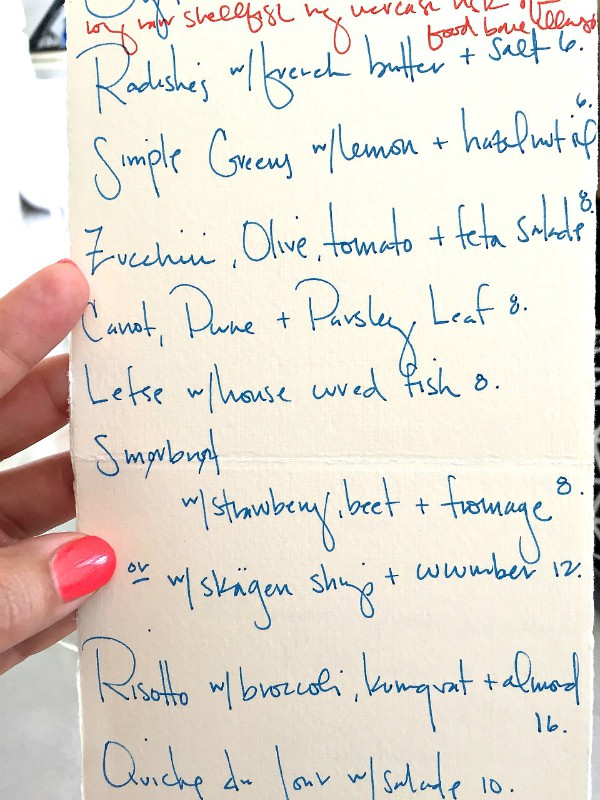 raw shellfish may increase risk of
food borne illness
Radishes w/french butter + salt 6.
Simple Greens w/lemon + hazelnut 6.
Zucchini, Olive, tomato + feta salade 8.
Carrot, Prune + Parsley Leaf 8.
Lefse w/house cured fish 8.
Smørbrød
w/strawberry, beet + fromage 8.
or w/skägen shrimp + cucumber 12.
Risotto w/broccoli, kumquat + almond
16.
Quiche du Jour w/salade 10.